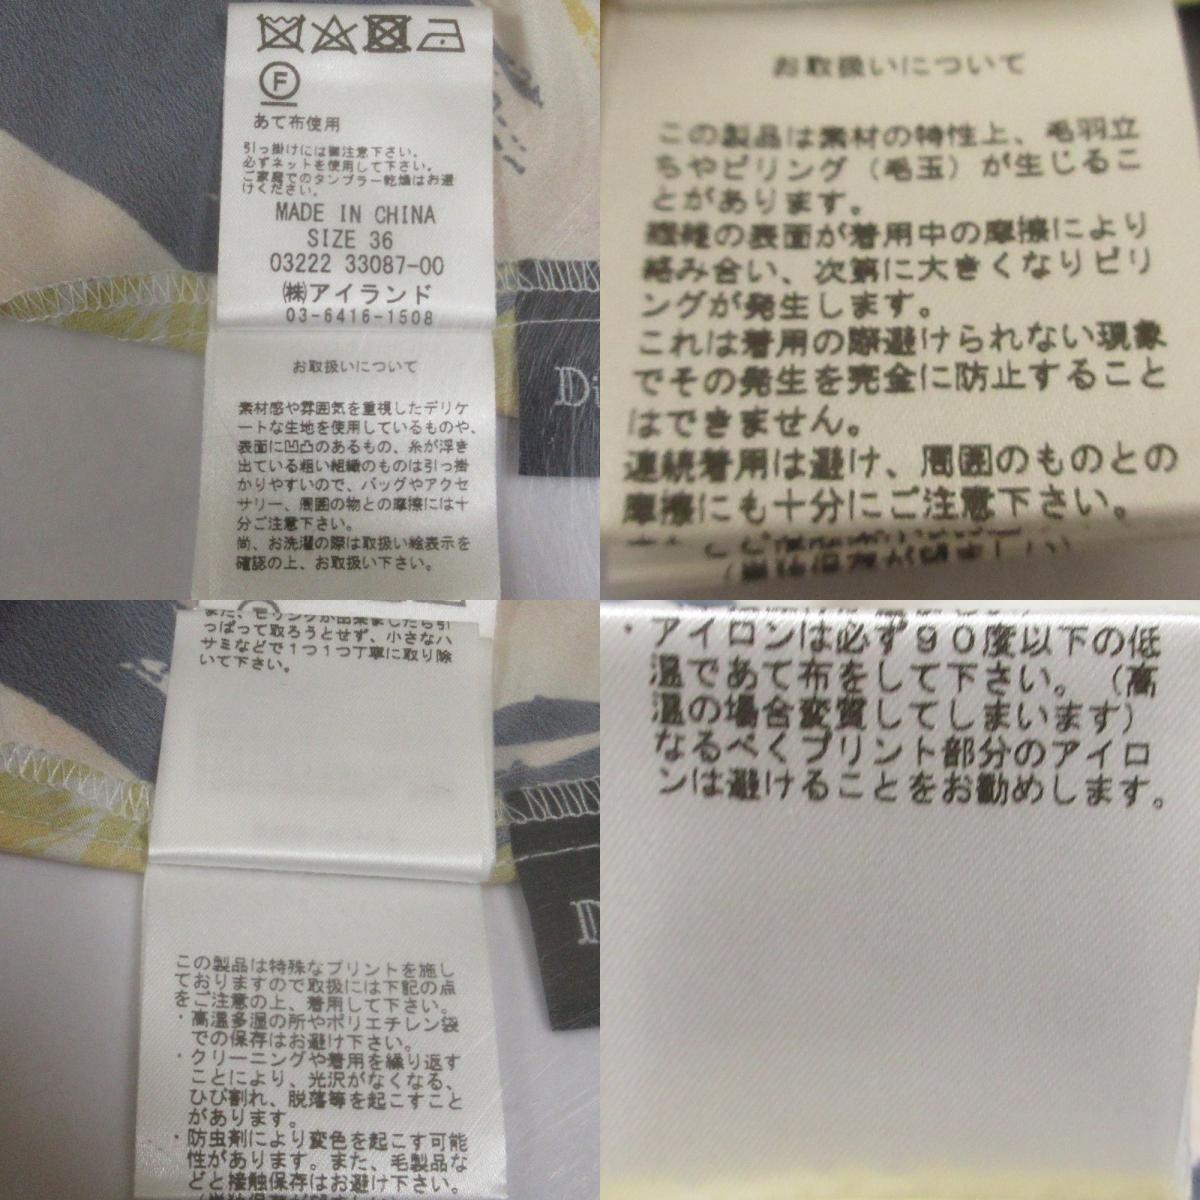 F
あて布使用
引っ掛けには御注意下さい。
必ずネットを使用して下さい。
ご家庭でのタンブラー乾燥はお避
けください。
MADE IN CHINA
SIZE 36
03222 33087-00
㈱アイランド
03-6416-1508
お取扱いについて
素材感や雰囲気を重視したデリケ
ートな生地を使用しているものや、
表面に凹凸のあるもの、糸が浮き
出ている粗い組織のものは引っ掛
かりやすいので、バッグやアクセ
サリー、周囲の物との摩擦には十
分ご注意下さい。
尚、お洗濯の際は取扱い絵表示を
確認の上、お取扱い下さい。
Di
お取扱いについて
この製品は素材の特性上、毛羽立
ちやピリング（毛玉）が生じるこ
とがあります。
繊維の表面が着用中の摩擦により
絡み合い、次第に大きくなりピリ
ングが発生します。
これは着用の際避けられない現象
でその発生を完全に防止すること
はできません。
連続着用は避け、周囲のものとの
摩擦にも十分にご注意下さい。
また、ピリングが出来ましたら引
っぱって取ろうとせず、小さなハ
サミなどで１つ１つ丁寧に取り除
いて下さい。
この製品は特殊なプリントを施し
ておりますので取扱には下記の点
をご注意の上、着用して下さい。
・高温多湿の所やポリエチレン袋
での保存はお避け下さい。
・クリーニングや着用を繰り返す
ことにより、光沢がなくなる、
ひび割れ、脱落等を起こすこと
があります。
・防虫剤により変色を起こす可能
性があります。また、毛製品な
どと接触保存はお避け下さい。
・アイロンは必ず９０度以下の低
温であて布をして下さい。（高
温の場合変質してしまいます）
なるべくプリント部分のアイロ
ンは避けることをお勧めします。